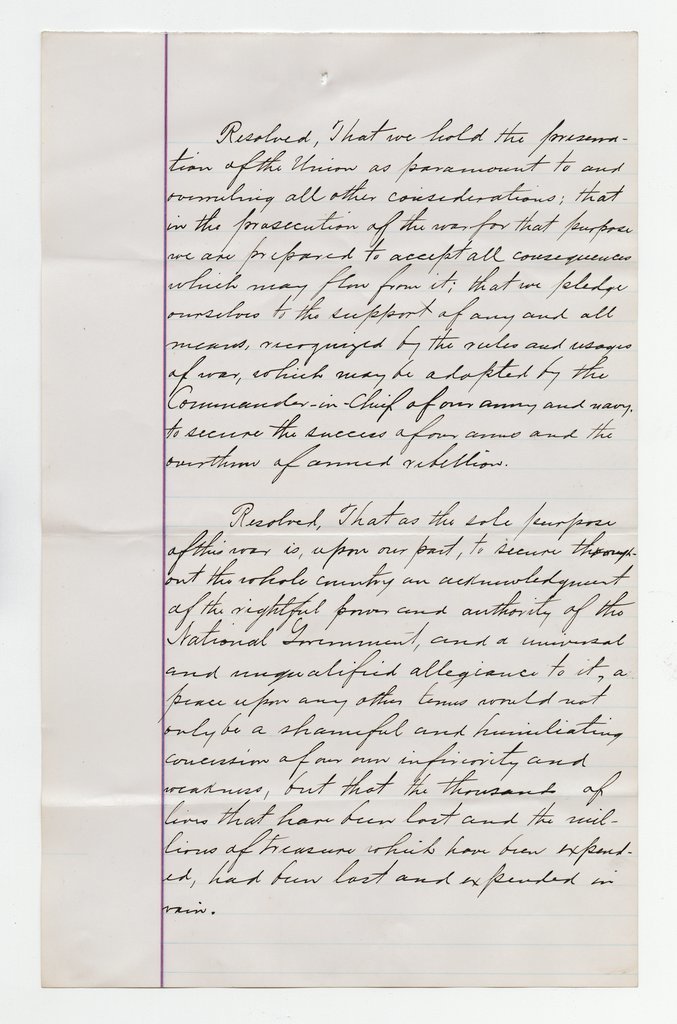 Resolved, That we hold the preserva-
tion of the Union as paramount to and
overruling all other considerations; that
in the prosecution of the war for that purpose
we are prepared to accept all consequences
which may flow from it; that we pledge
ourselves to the support of any and all
means, recognized by the rules and usages
of war, which may be adopted by the
Commander-in-Chief of our army and navy.
to secure the success of our arms and the
overthrow of armed rebellion.
Resolved, That as the sole purpose
of this war is, upon our part, to secure through-
out the whole country an acknowledgment
of the rightful power and authority of the
National Government, and a universal
and unqualified allegiance to it, a
peace upon any other terms would not
only be a shameful and humiliating
concession of our own inferiority and
weakness, but that the thousands of
lives that have been lost and the mil-
lions of treasure which have been expend-
ed, had been lost and expended in
vain.